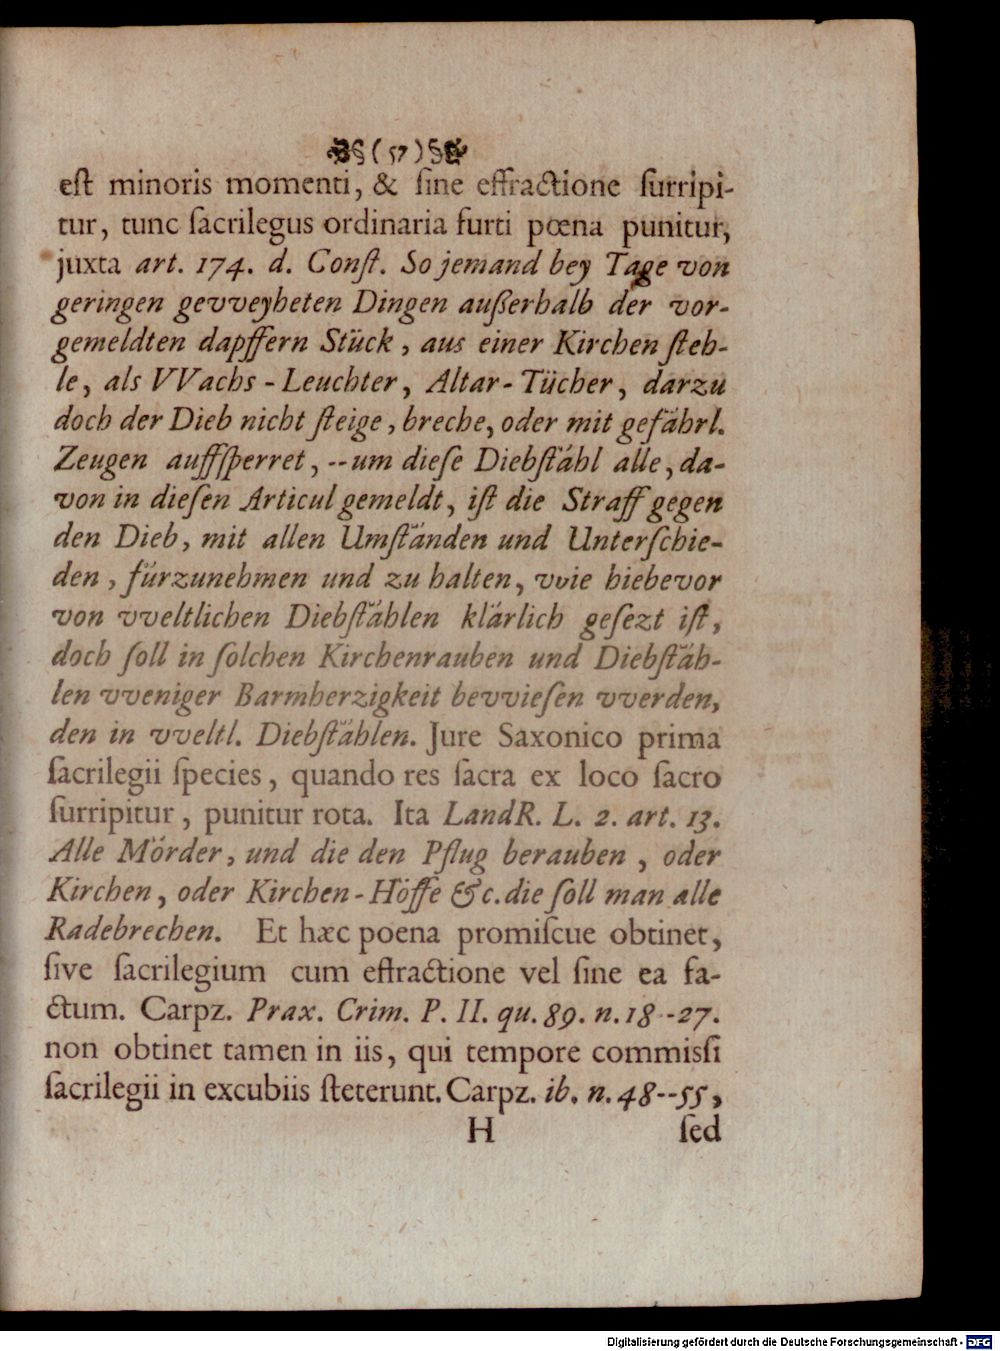 § ( 57 ) §
eſt minoris momenti, & ſine effractione ſurripi-
tur, tunc ſacrilegus ordinaria furti pœna punitur,
juxta art. 174. d. Conſt. So jemand bey Tage von
geringen gevveyheten Dingen außerhalb der vor-
gemeldten dapffern Stück, aus einer Kirchen ſteh-
le, als VVachs-Leuchter, Altar-Tücher, darzu
doch der Dieb nicht ſteige, breche, oder mit gefährl.
Zeugen auffſperret, --um dieſe Diebſtähl alle, da-
von in dieſen Articul gemeldt, iſt die Straff gegen
den Dieb, mit allen Umſtänden und Unterſchie-
den, fürzunehmen und zu halten, vvie hiebevor
von vveltlichen Diebſtählen klärlich geſezt iſt,
doch ſoll in ſolchen Kirchenrauben und Diebſtäh-
len vveniger Barmherzigkeit bevvieſen vverden,
den in vveltl. Diebſtählen. Jure Saxonico prima
ſacrilegii ſpecies, quando res ſacra ex loco ſacro
ſurripitur, punitur rota. Ita LandR. L. 2. art. 13.
Alle Mörder, und die den Pflug berauben, oder
Kirchen, oder Kirchen-Höffe &c. die ſoll man alle
Radebrechen. Et hæc poena promiſcue obtinet,
ſive ſacrilegium cum effractione vel ſine ea fa-
ctum. Carpz. Prax. Crim. P. II. qu. 89. n. 18--27.
non obtinet tamen in iis, qui tempore commiſſi
ſacrilegii in excubiis ſteterunt. Carpz. ib. n. 48--55,
H ſed
Digitalisierung gefördert durch die Deutsche Forschungsgemeinschaft - DFG